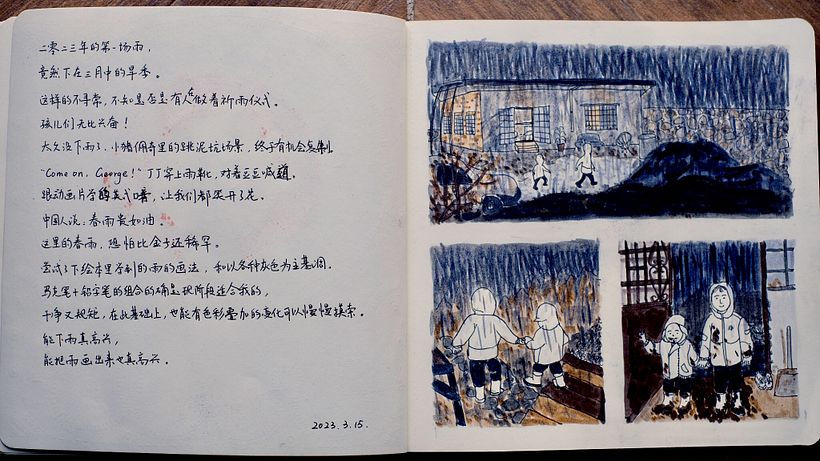 二零二三年的第一场雨，
竟然下在三月中的旱季。
这样的不寻常，不知是否是有人在做着祈雨仪式。
孩儿们无比兴奋！
太久没下雨了，小猪佩奇里的跳泥坑场景，终于有机会复制。
"Come on, George!" 丁丁穿上雨靴，对着豆豆喊道。
跟动画片学的英式口音，让我们都笑开了花。
中国人说：春雨贵如油。
这里的春雨，恐怕比金子还稀罕。
尝试了下绘本里学到的雨的画法，和以各种灰色为主基调。
马克笔+铅字笔的组合的确是现阶段适合我的，
干净又规矩，在此基础上，也能有色彩叠加的变化可以慢慢摸索。
能下雨真高兴，
能把雨画出来也真高兴。
2023.3.15.